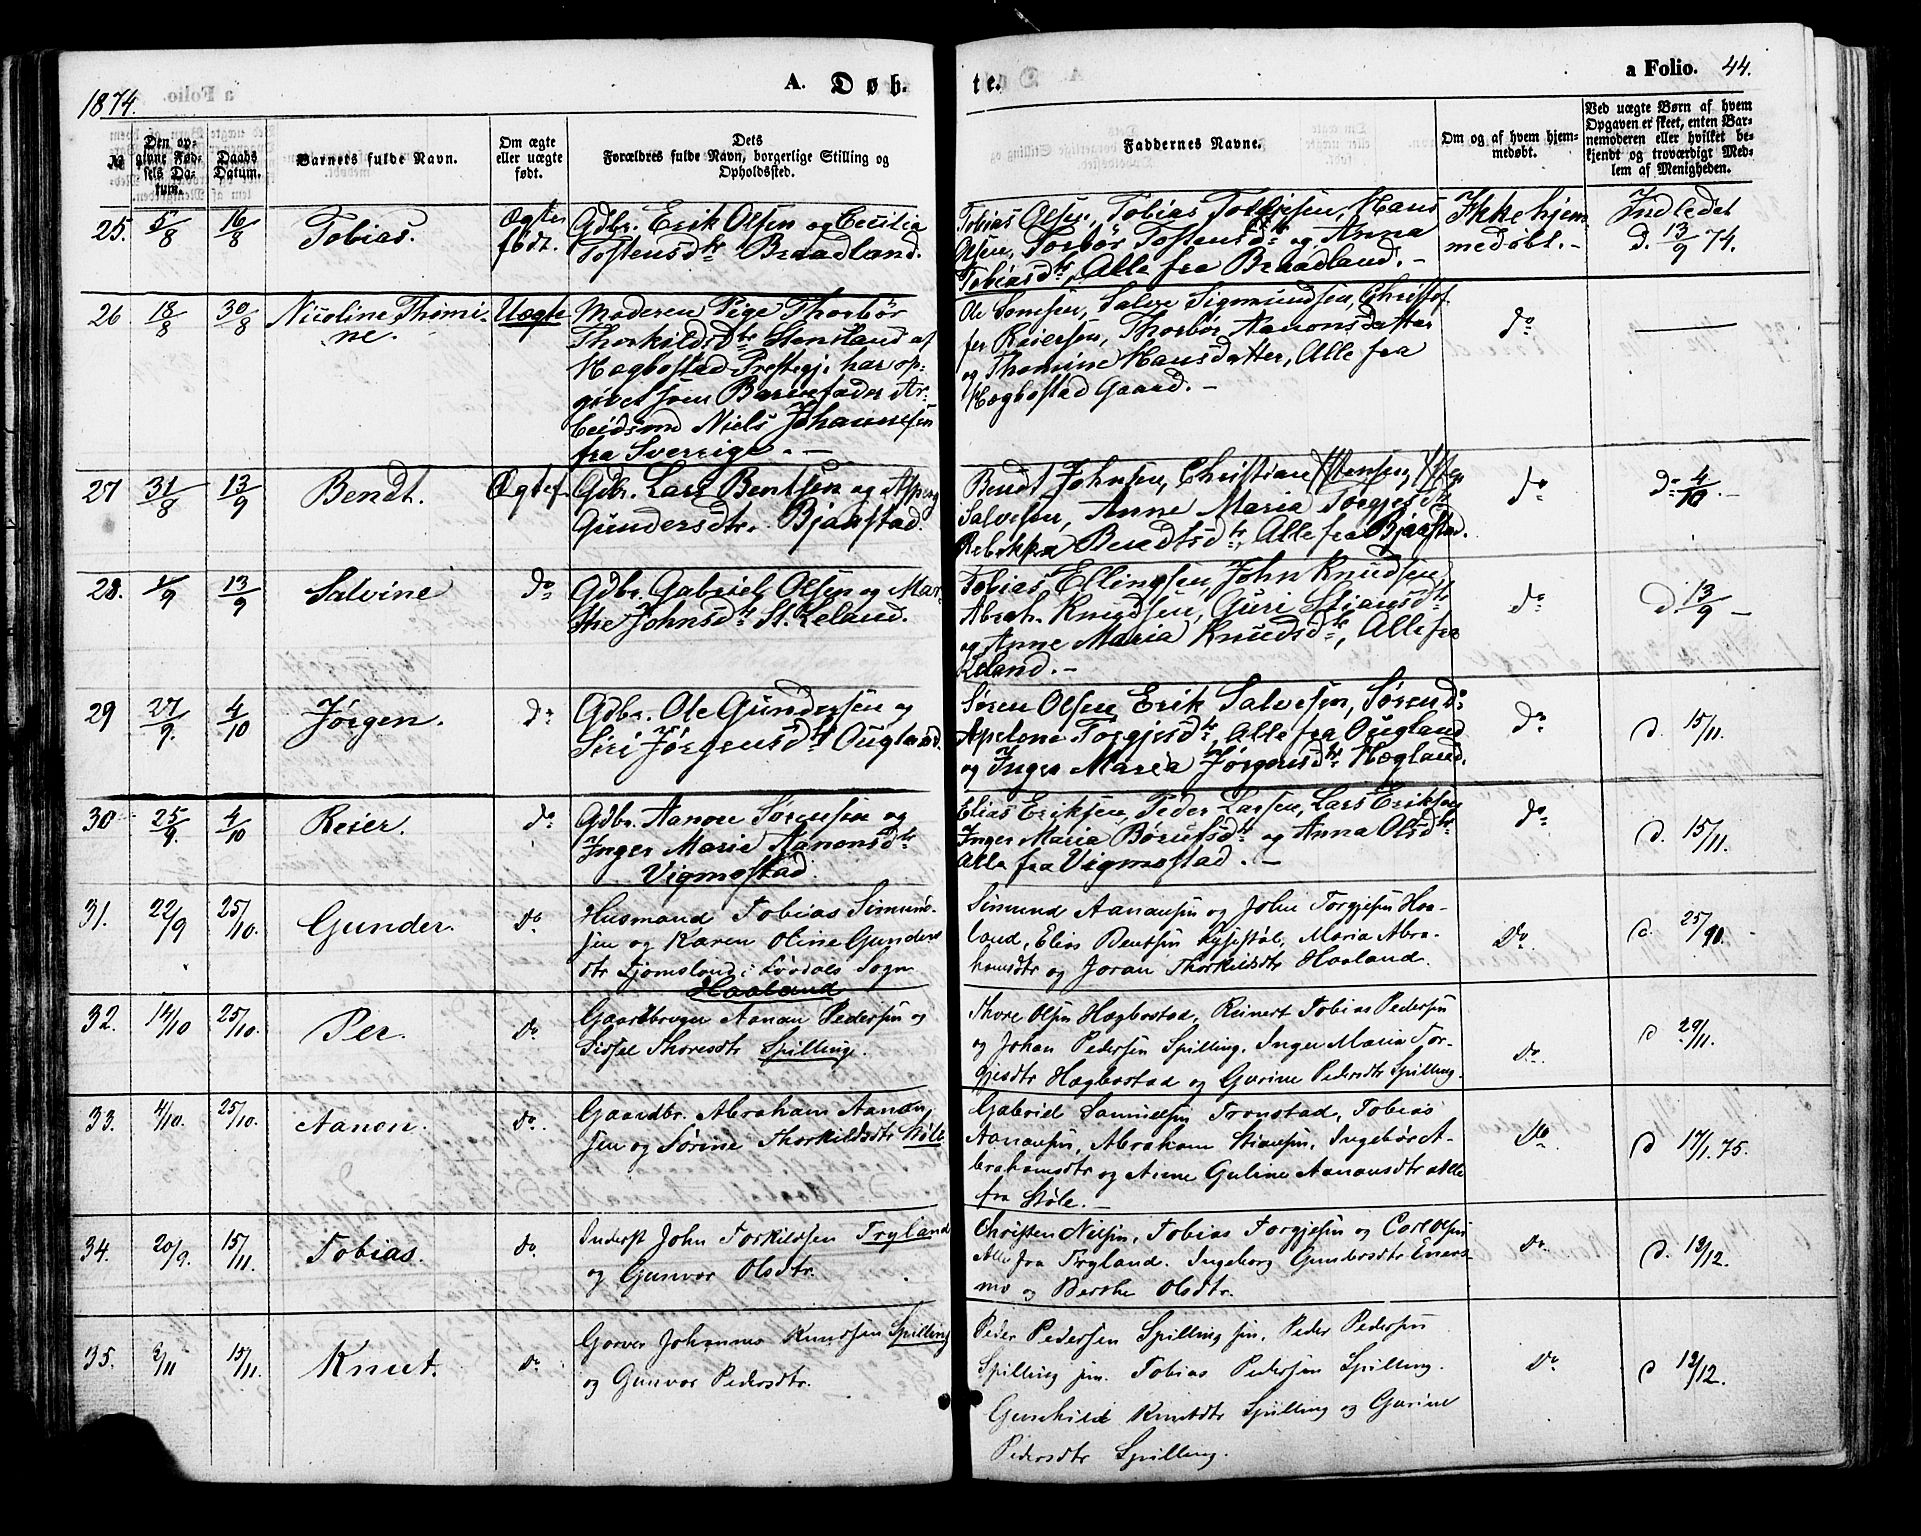 1874.
A. Døb-
te.
a Folio. 44.
№
Den op-
givne Fød-
sels Da-
tum.
Daabs
Datum.
Barnets fulde Navn.
Om ægte
eller uægte
født.
Dets
Forældres fulde Navn, borgerlige Stilling og
Opholdssted.
Faddernes Navne.
Om og af hvem hjem-
medøbt.
Ved uægte Børn af hvem
Opgaven er skeet, enten Bar-
nemoderen eller hvilket be-
kjendt og troværdigt Med-
lem af Menigheden.
25. 5/8 16/8 Tobias. Ægte
født.
Gdbr. Erik Olsen og Cecilia
Tostensdtr Braadland.
Tobias Olsen, Tobias Torgjesen, Hans
Olsen, Torbør Tostensdtr og Anna
Tobiasdtr, Alle fra Braadland. –
Ikke hjem
medøbt. –
Indledet
d. 13/9 74.
26 18/8 30/8 Nicoline Thomi-
ne.
Uægte
Moderen Pige Thorbør
Thorkildsdtr Stenland af
Hægbostad Prestegj. har op-
givet som Barnefader Ar-
beidsmd Niels Johannesen
fra Sverrige. –
Ole Sørensen, Salve Sigmundsen, Christof-
fer Reiersen, Thorbør Aanonsdatter
og Thomine Hansdatter, Alle fra
Hægbostad Gaard. –
do
27 31/8 13/9 Bendt. Ægtef.
Gdbr. Lars Bentsen og
Gundersdtr. Bjaastad.
Bendt Johnsen, Christian
Salvesen, Anne Maria Torgjesdtr
Rebekka Bendtsdtr, Alle fra Bjaastad.
do
d. 4/10. –
28. 1/9 13/9 Salvine do
Gdbr. Gabriel Olsen og Mar-
the Johnsdtr St. Leland.
Tobias Ellingsen, John Knudsen,
Abrah. Knudsen, Guri Stiansdtr
og Anne Maria Knudsdtr, Alle fra
Leland. –
do
d. 13/9 –
29 27/9. 4/10 Jørgen. do
Gdbr. Ole Gundersen og
Siri Jørgensdtr Ougland.
Søren Olsen, Erik Salvesen, Sørend:
Apelone Torgjesdtr, Alle fra Ougland
og Inger Maria Jørgensdtr Hægland.
do
d. 15/11.
30 25/9. 4/10 Reier. do
Gdbr. Aanon Sørensen og
Inger Marie Aanonsdtr
Vigmostad.
Elias Eriksen, Peder Larsen, Lars Eriksen
Inger Maria Børufsdtr og Anna Olsdtr
Alle fra Vigmostad. –
do
d. 15/11.
31. 22/9 25/10. Gunder. do
Husmand Tobias Simund-
sen og Karen Oline Gunders
dtr Fjomsland i Løvdals Sogn
Haaland
Simund Aanansen og John Torgjesen Haa-
land, Elias Bentsen Lysestøl, Maria Abra-
hamsdtr og Joran Thorkildsdtr Haaland.
Do
d. 25/90.
32. 14/10 25/10. Per. do.
Gaardbruger Aanon Pedersen og
Sissel Thoresdtr Spilling.
Thore Olsen Hægbostad, Reinert Tobias Pedersen
og Johan Pedersen Spilling. Inger Maria Tor-
gjesdtr Hægbostad og Gurine Pedersdtr Spilling.
do.
d 29/11.
33. 4/10. 25/10. Aanon. do.
Gaardbr. Abraham Aanon-
sen og Sørine Thorkildsdtr Støle.
Gabriel Samuelsen Tronstad, Tobias
Aanansen, Abraham Stiansen, Ingebør A-
brahamsdtr og Anne Guline Aanansdtr alle
fra Støle. –
do
d 17/1. 75.
34. 20/9. 15/11. Tobias. do.
Inderst John Torkildsen Tryland
og Gunvor Olsdtr.
Christen Nilsen, Tobias Torgjesen og Carl Olsen
Alle fra Tryland. Ingeborg Gundersdtr Eners-
mo og Berthe Olsdtr.
do.
d. 12/12.
35. 2/11 15/11. Knut. do.
Garver Johannes Knudsen Spilling
og Gunvor Pedersdtr.
Peder Pedersen Spilling sen. Peder Pedersen
Spilling jun. Tobias Pedersen Spilling.
Gunhild Knutsdtr Spilling og Gurine
Pedersdtr Spilling.
do.
d 12/12.